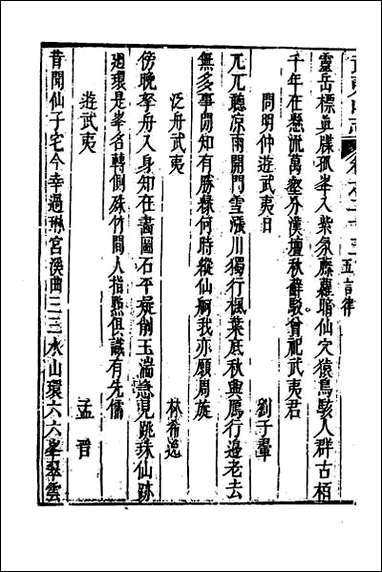 武夷山志 卷之二十三 五言律
靈岳標真牒孤峯入紫氛藤蘿暗仙穴猿鳥駭人群古栢
千年在懸流萬壑分漢壇秋蘚駁曾祀武夷君
問明仲遊武夷日 劉子翬
兀兀聽凉雨開門雪漲川獨行楓葉底秋興鴈行邊老去
無多事閒知有勝緣何時縱仙舸我亦願周旋
泛舟武夷 林希逸
傍晚拏舟入身知在畫圖石平疑削玉湍急見跳珠仙跡
廻環是峯名轉側殊竹間人指點俱識有先儒
遊武夷 孟晋
昔聞仙子宅今幸過琳宮溪曲三三水山環六六峯翠雲